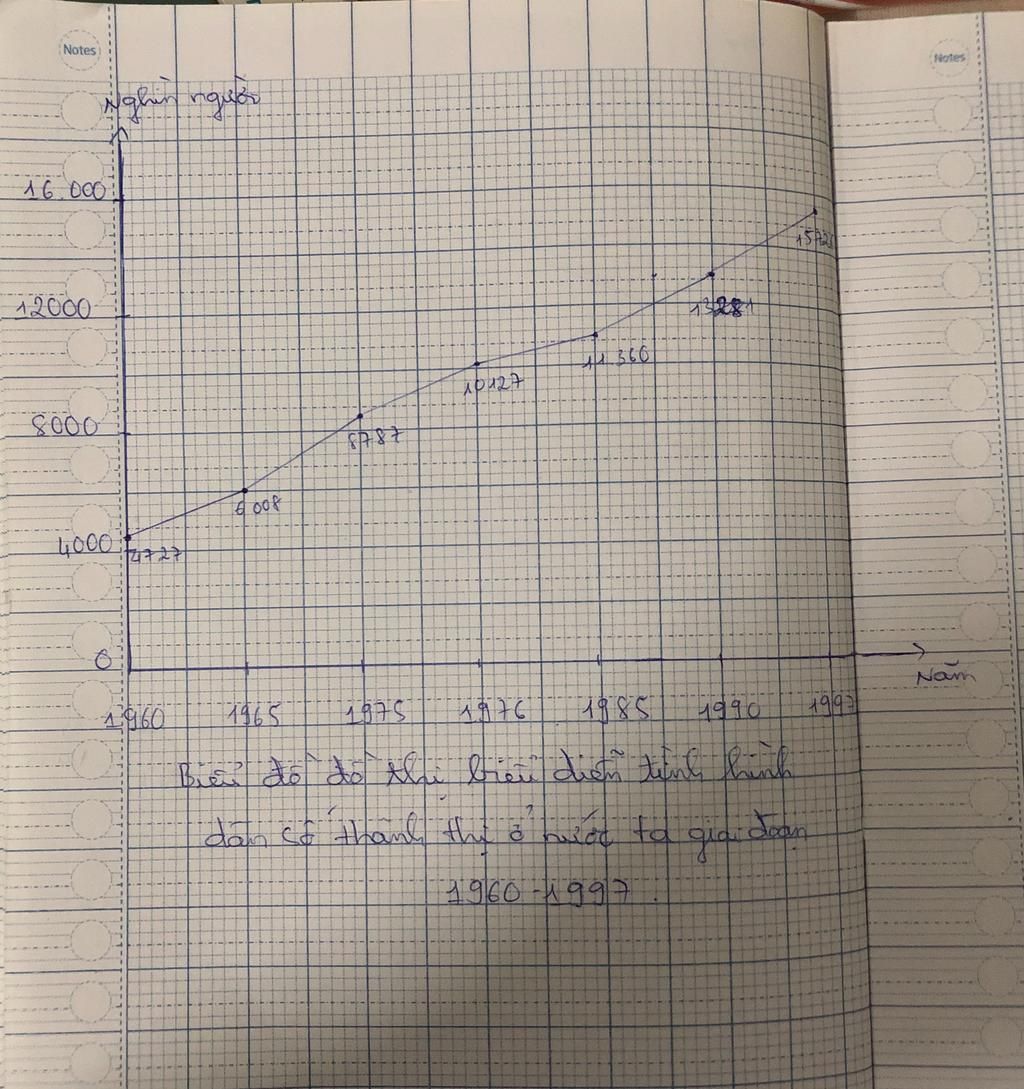 Notes
Notes
Nghìn người
16.000
12000
8000
4000
0
4727
6008
8787
10127
11.360
13281
1960 1965 1975 1976 1985 1990 1997
Năm
Biểu đồ đồ thị biểu diễn tình hình
dân số thành thị ở nước ta giai đoạn
1960-1997.